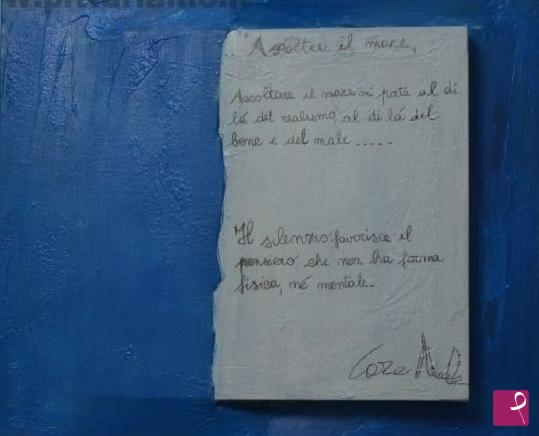 "Ascolter il mare,
Ascoltare il mare mi porta al di
lá del realismo, al di lá del
bene e del male .....
Il silenzio favorisce il
pensiero che non ha forma
fisica, né mentale..